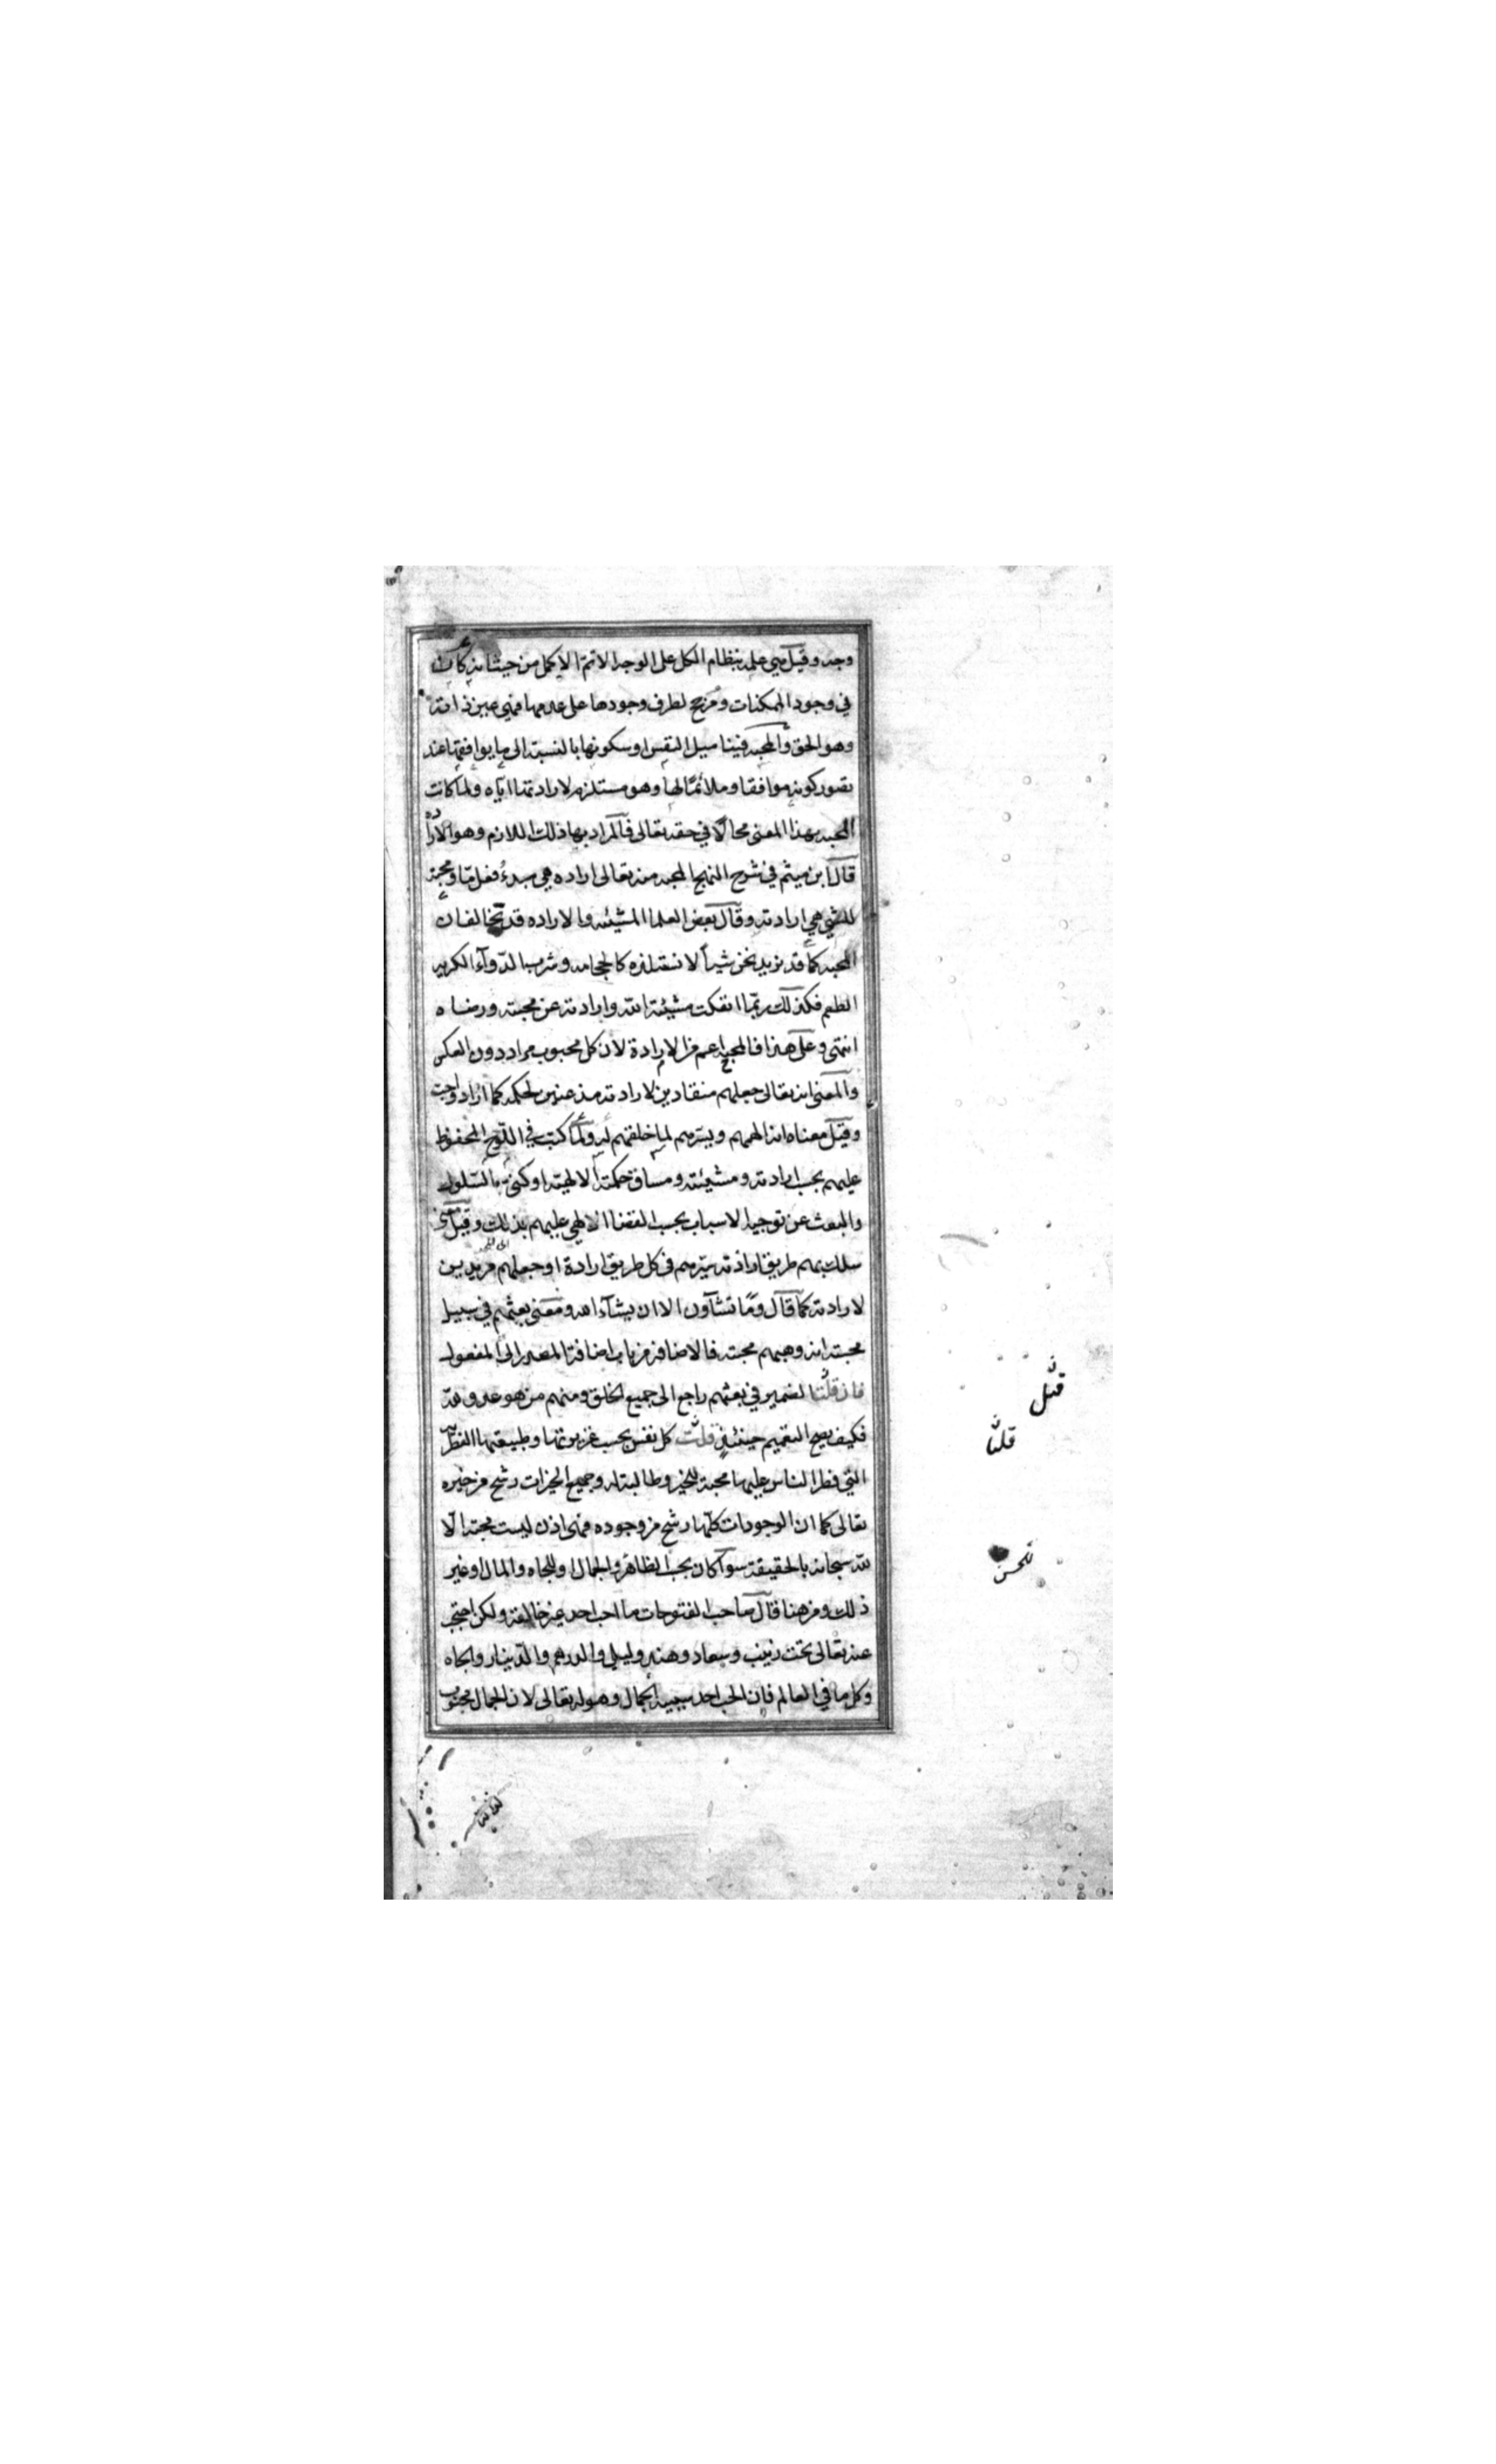 وجه وقيل هي علمه بنظام الكل على الوجه الاتم الاكمل من حيث انه كاف
في وجود الممكنات ومرجح لطرف وجودها على عدمها فهي عين ذاته
وهو الحق والمحبه فينا ميل النفس او سكونها بالنسبة الى ما يوافقها عند
تصور كونه موافقا وملائما لها وهو مستلزم لارادتها اياه ولما كانت
المحبه بهذا المعنى محالا في حقه تعالى فالمراد بها ذلك اللازم وهو الاراده
قال ابن ميثم في شرح النهج المحبه منه تعالى اراده هي مبدء فعل ما ومحبته
للشئ هي ارادته وقال بعض العلما المشيئه والاراده قد تخالفان
المحبه كما قد نريد نحن شيأ لا نستلذه كالحجامه وشرب الدوآء الكريه
الطعم فكذلك ربما انفكت مشيئة الله وارادته عن محبته ورضاه
انتهى وعلى هذا فالمحبه اعم من الارادة لان كل محبوب مراد دون العكس
والمعنى انه تعالى جعلهم منقادين لارادته مذعنين لحكمه كما اراد واحب
وقيل معناه انه الهمهم ويسرهم لما خلقهم له ولما كتب في اللوح المحفوظ
عليهم بحسب ارادته ومشيئته ومساق حكمته الالهية او كنى بالسلوك
والبعث عن توجيه الاسباب بحسب القضا الالهي عليهم بذلك وقيل معنى
سلك بهم طريق ارادته سيرهم في كل طريق ارادة او جعلهم مريدين
لارادته كما قال وما تشآون الا ان يشآء الله ومعنى بعثهم في سبيل
محبته انه وهبهم محبته فالاضافة من باب اضافة المصدر الى المفعول
فان قلت الضمير في بعثهم راجع الى جميع الخلق ومنهم من هو عدو لله
فكيف يصح التعميم حينئذ قلت كل نفس بحسب غريزتها وطبيعتها الفطرية
التي فطر الناس عليها محبة للخير وطالبة له وجميع الخيرات رشح من خيره
تعالى كما ان الوجودات كلها رشح من وجوده فهي اذن ليست محبة الا
لله سبحانه بالحقيقة سوآ كان بحب الظاهر والجمال او للجاه والمال او غير
ذلك ومن هنا قال صاحب الفتوحات ما احب احد غير خالقه ولكن احتجب
عنه تعالى تحت زينب وسعاد وهند وليلى والدرهم والدينار والجاه
وكل ما في العالم فان الحب احد سببيه الجمال وهو له تعالى لان الجمال محبوب
قيل
قلنا